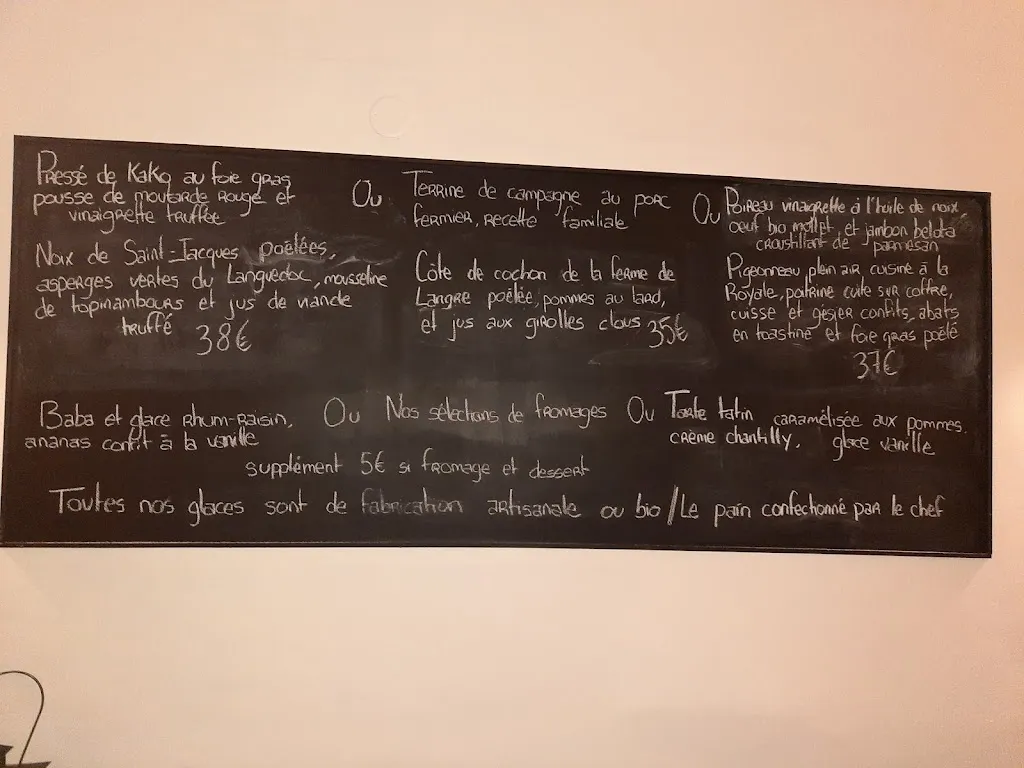 Pressé de KaKo au foie gras
pousse de moutarde rouge et
vinaigrette truffée
Ou
Terrine de campagne au porc
fermier, recette familiale
Ou
Poireau vinaigrette à l'huile de noix
oeuf bio mollet, et jambon belota
croustillant de parmesan
Noix de Saint-Jacques poëlées,
asperges vertes du Languedoc, mousseline
de topinambours et jus de viande
truffé 38€
Côte de cochon de la ferme de
Langre poëlée, pommes au lard,
et jus aux girolles clous 35€
Pigeonneau plein air cuisiné à la
Royale, poitrine cuite sur coffre,
cuisse et gésier confits, abats
en toastine et foie gras poëlé
37€
Baba et glace Rhum-Raisin,
ananas confit à la vanille
Ou
Nos sélections de fromages
Ou
Tarte tatin caramélisée aux pommes.
crème chantilly, glace vanille
supplément 5€ si fromage et dessert
Toutes nos glaces sont de fabrication artisanale ou bio / Le pain confectionné par le chef